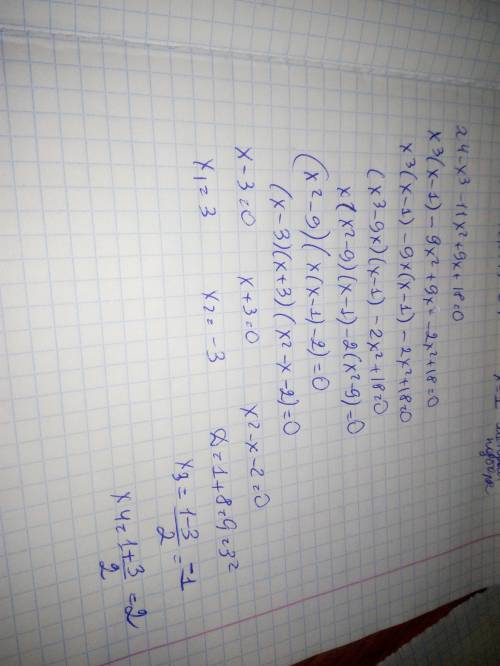 24-x³-11x²+9x+18=0
x³(x-1)-9x²+9x-2x²+18=0
x³(x-1)-9x(x-1)-2x²+18=0
(x³-9x)(x-1)-2x²+18=0
x(x²-9)(x-1)-2(x²-9)=0
(x²-9)(x(x-1)-2)=0
(x-3)(x+3)(x²-x-2)=0
x-3=0 x+3=0 x²-x-2=0
x₁=3 x₂=-3 D=1+8=9=3²
x₃=\frac{1-3}{2}=-1
x4=\frac{1+3}{2}=2